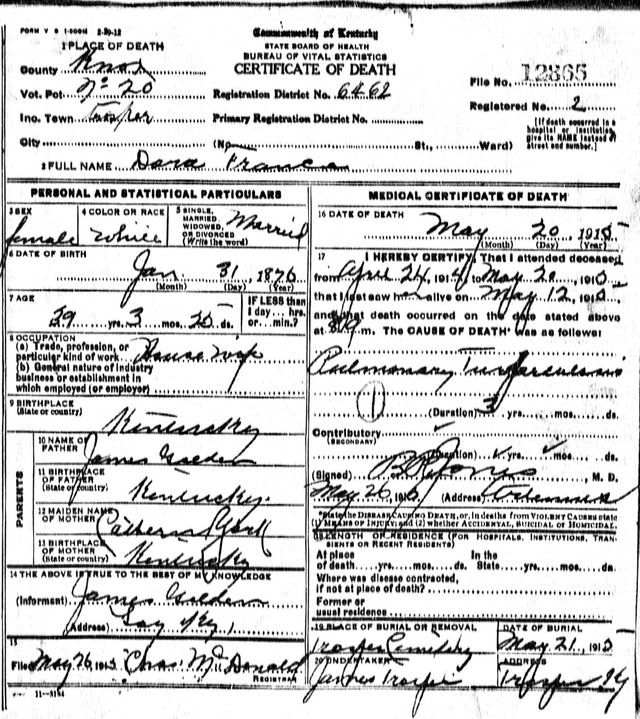 FORM V S 1-500M 2-30-12
Commonwealth of Kentucky
STATE BOARD OF HEALTH
BUREAU OF VITAL STATISTICS
CERTIFICATE OF DEATH
1 PLACE OF DEATH
County Knox
Vot. Pct No 20
Inc. Town Trosper
City (No St., Ward)
Registration District No. 6462
Primary Registration District No.
File No. 12365
Registered No. 2
[If death occurred in a hospital or institution, give its NAME instead of street and number.]
2 FULL NAME Dora Francis
PERSONAL AND STATISTICAL PARTICULARS
3 SEX female
4 COLOR OR RACE White
5 SINGLE, MARRIED, WIDOWED, OR DIVORCED (Write the word) Married
6 DATE OF BIRTH
Jan 31, 1876
(Month) (Day) (Year)
7 AGE
39 yrs. 3 mos. 20 ds.
IF LESS than 1 day... hrs. or... min.?
8 OCCUPATION
(a) Trade, profession, or particular kind of work House wife
(b) General nature of industry business or establishment in which employed (or employer)
9 BIRTHPLACE
(State or country) Kentucky
PARENTS
10 NAME OF FATHER James Golden
11 BIRTHPLACE OF FATHER (State or country) Kentucky
12 MAIDEN NAME OF MOTHER Catherin
13 BIRTHPLACE OF MOTHER (State or country) Kentucky
14 THE ABOVE IS TRUE TO THE BEST OF MY KNOWLEDGE
(Informant) James Golden
(Address) Gay Ky
15
Filed May 26, 1915 Chas. McDonald
REGISTRAR
11-3184
MEDICAL CERTIFICATE OF DEATH
16 DATE OF DEATH
May 20, 1915
(Month) (Day) (Year)
17 I HEREBY CERTIFY, That I attended deceased
from April 24, 1914 to May 20, 1915
that I last saw her alive on May 12, 1915
and that death occurred on the date stated above
at m. The CAUSE OF DEATH was as follows:
Pulmonary Tuberculosis
(Duration) 3 yrs. mos. ds.
Contributory
(SECONDARY)
(Duration) yrs. mos. ds.
(Signed) Jones, M. D.
May 26, 1915 (Address)
*State the DISEASE CAUSING DEATH, or, in deaths from VIOLENT CAUSES state (1) MEANS OF INJURY; and (2) whether ACCIDENTAL, SUICIDAL or HOMICIDAL.
18 LENGTH OF RESIDENCE (FOR HOSPITALS, INSTITUTIONS, TRANSIENTS OR RECENT RESIDENTS)
At place of death yrs. mos. ds. In the State yrs. mos. ds.
Where was disease contracted, if not at place of death?
Former or usual residence
19 PLACE OF BURIAL OR REMOVAL
Trosper Cemetery
DATE OF BURIAL
May 21, 1915
20 UNDERTAKER
James Trosper
ADDRESS
Trosper Ky